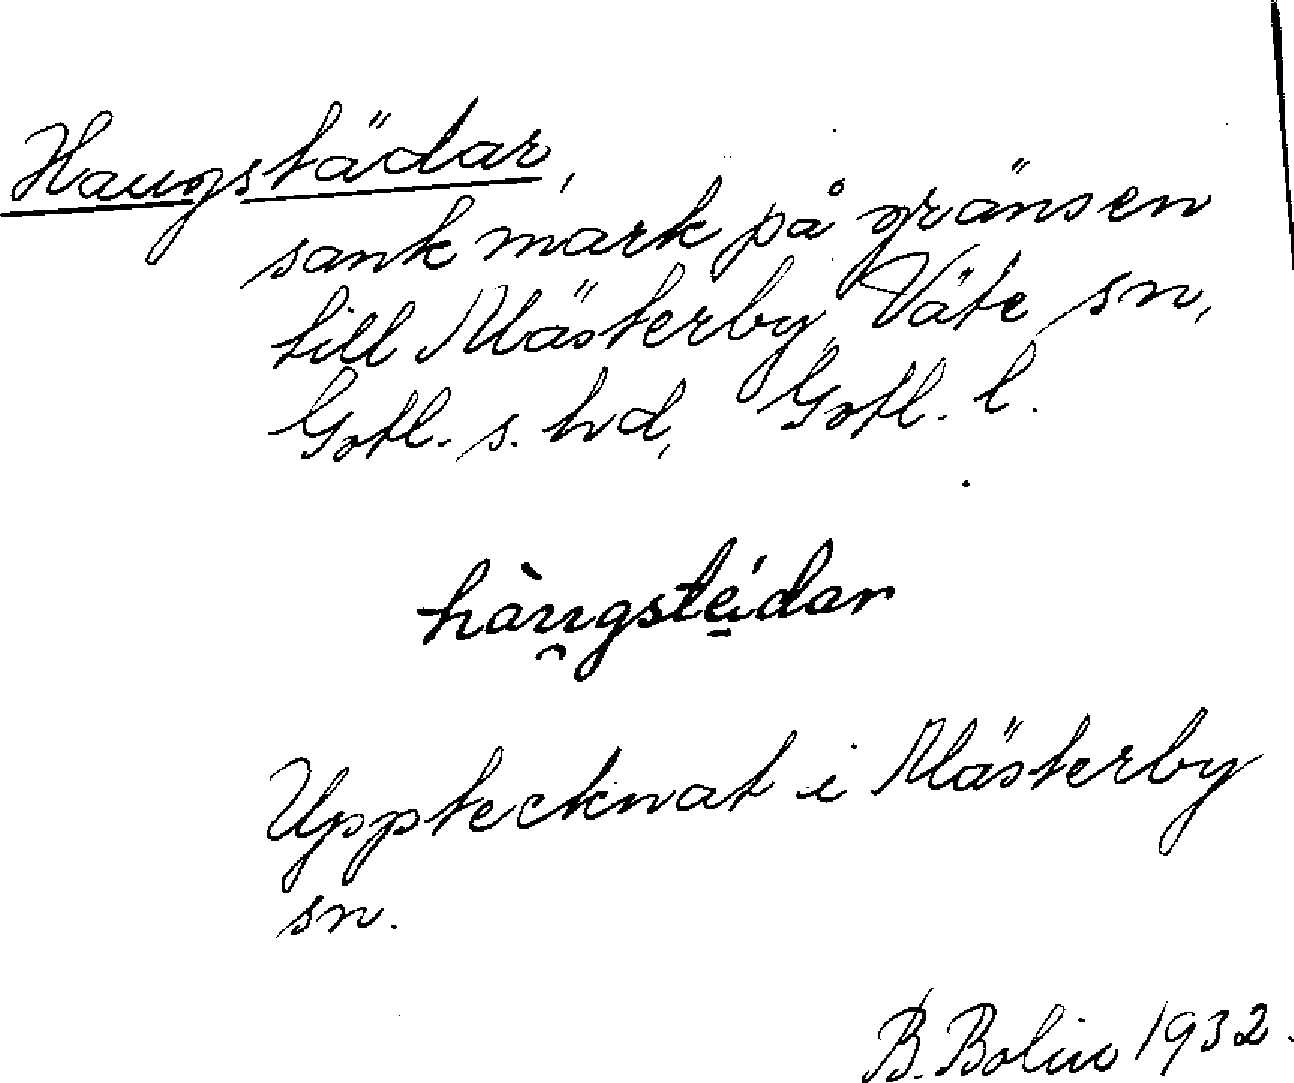 Haugstädar,
sank mark på gränsen
till Mästerby, Väte sn,
Gotl. s. hd, Gotl. l.
hàu̯gstẹ́dar
Upptecknat i Mästerby
sn.
B. Bolin 1932.